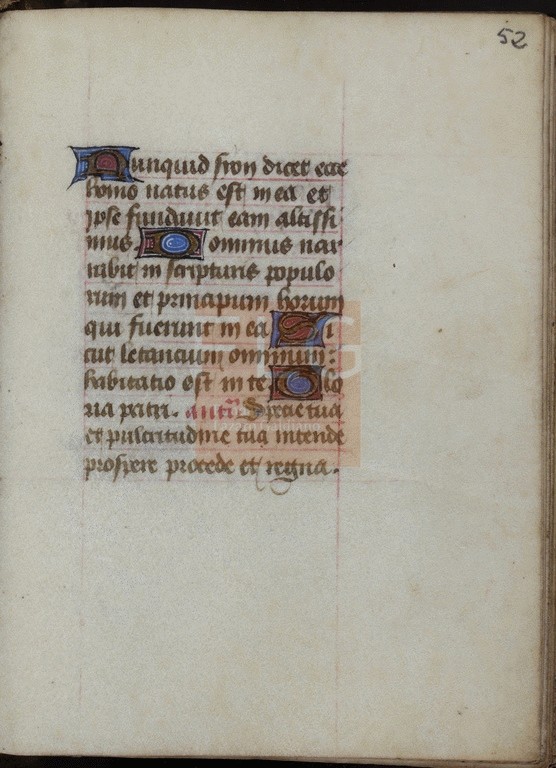 52
Nunquid syon dicet ecce
homo natus est in ea et
ipse fundauit eam altissi
mus. Dominus nar
rabit in scripturis populo
rum et principum horum
qui fuerunt in ea Si
cut letancium omnium:
habitatio est in te. Glo
ria patri. antiⷣ Specie tua
et pulcritudine tua intende
prospere procede et regna.
Lázaro Galdiano